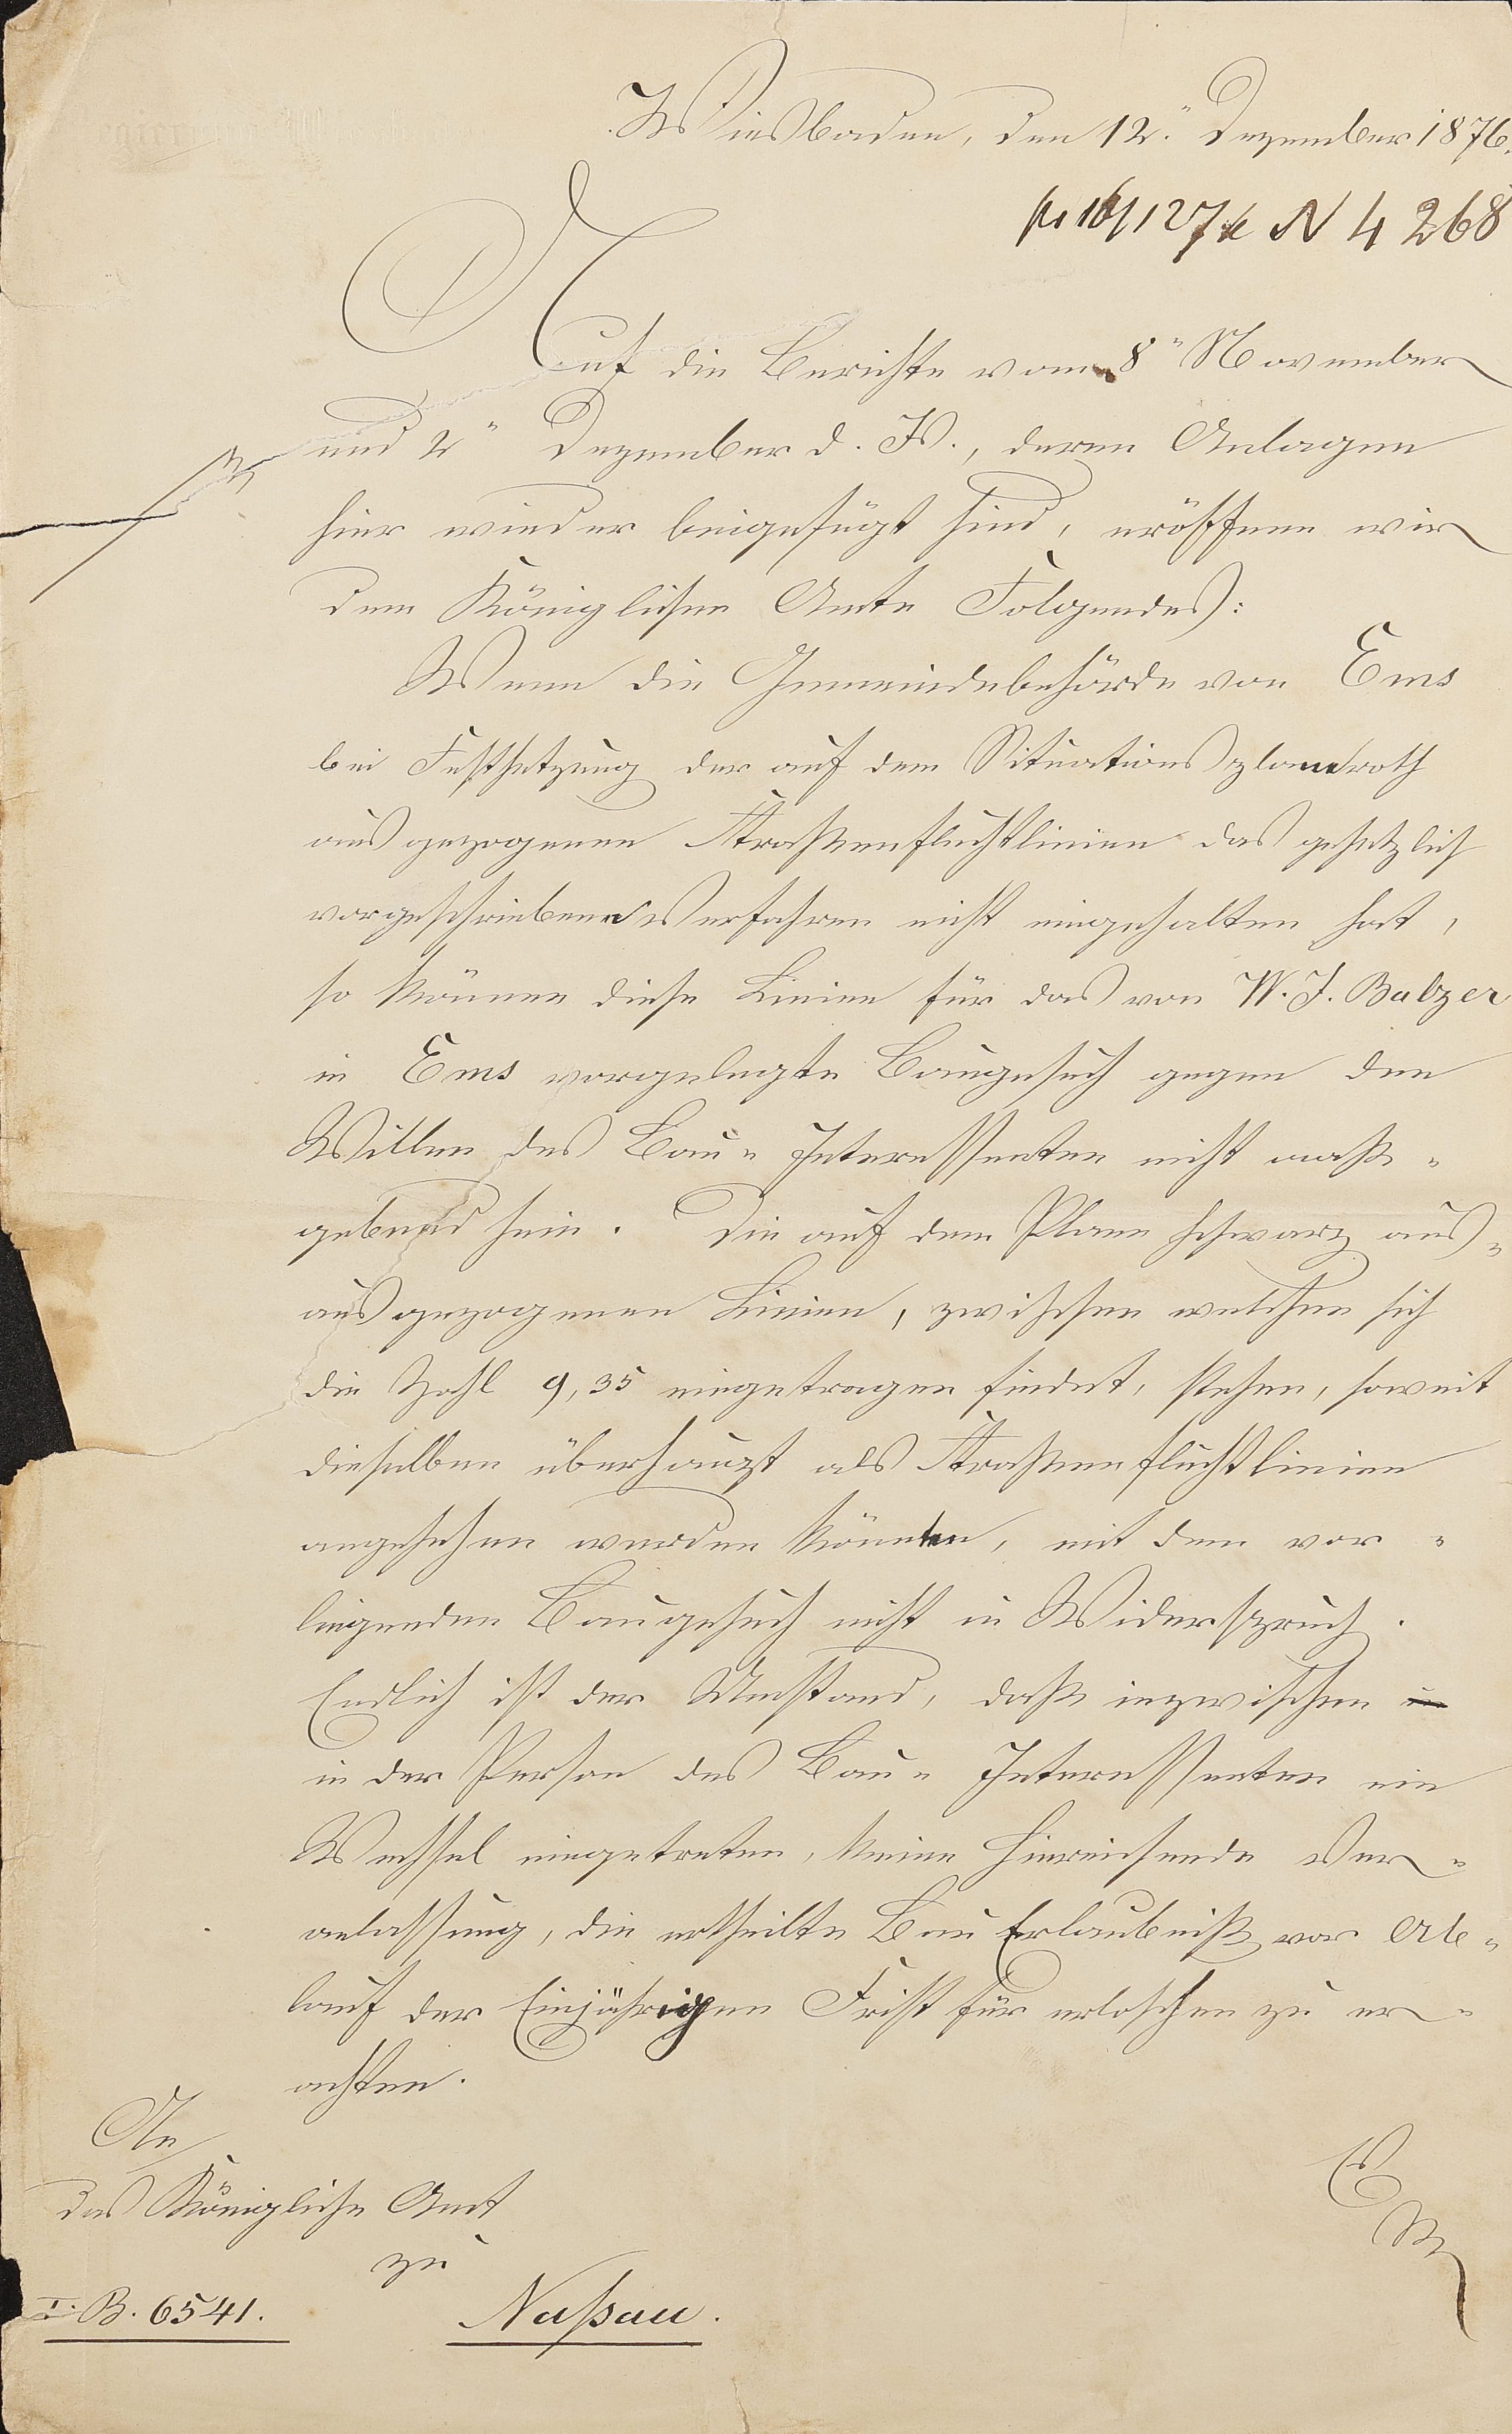 Wiesbaden, den 12. Dezember 1876.
N 4268
Auf die Berichte vom 8" November
und 2" Dezember d. Js., deren Anlagen
hier wieder beigefügt sind, eröffnen wir
dem Königlichen Amte Folgendes:
Wenn die Gemeindebehörde von Ems
bei Festsetzung der auf dem Situationsplan roth
ausgezogenen Straßenfluchtlinien das gesetzlich
vorgeschriebene Verfahren nicht eingehalten hat,
so können diese Linien für das von W. J. Balzer
in Ems vorgelegte Baugesuch gegen den
Willen des Bau-Interessenten nicht maß-
gebend sein. Die auf dem Plane schwarz aus-
ausgezogenen Linien, zwischen welchen sich
die Zahl 9,35 eingetragen findet, stehen, soweit
dieselben überhaupt als Straßenfluchtlinien
angesehen werden könnten, mit dem vor-
liegenden Baugesuch nicht in Widerspruch.
Endlich ist der Umstand, daß inzwischen in
in der Person des Bau-Interessenten ein
Wechsel eingetreten, keine hinreichende Ver-
anlassung, die ertheilte Bau Erlaubniß vor Ab-
lauf der Einjährigen Frist für erloschen zu er-
achten.
An
das Königliche Amt
zu
I. B. 6541. Naßau.